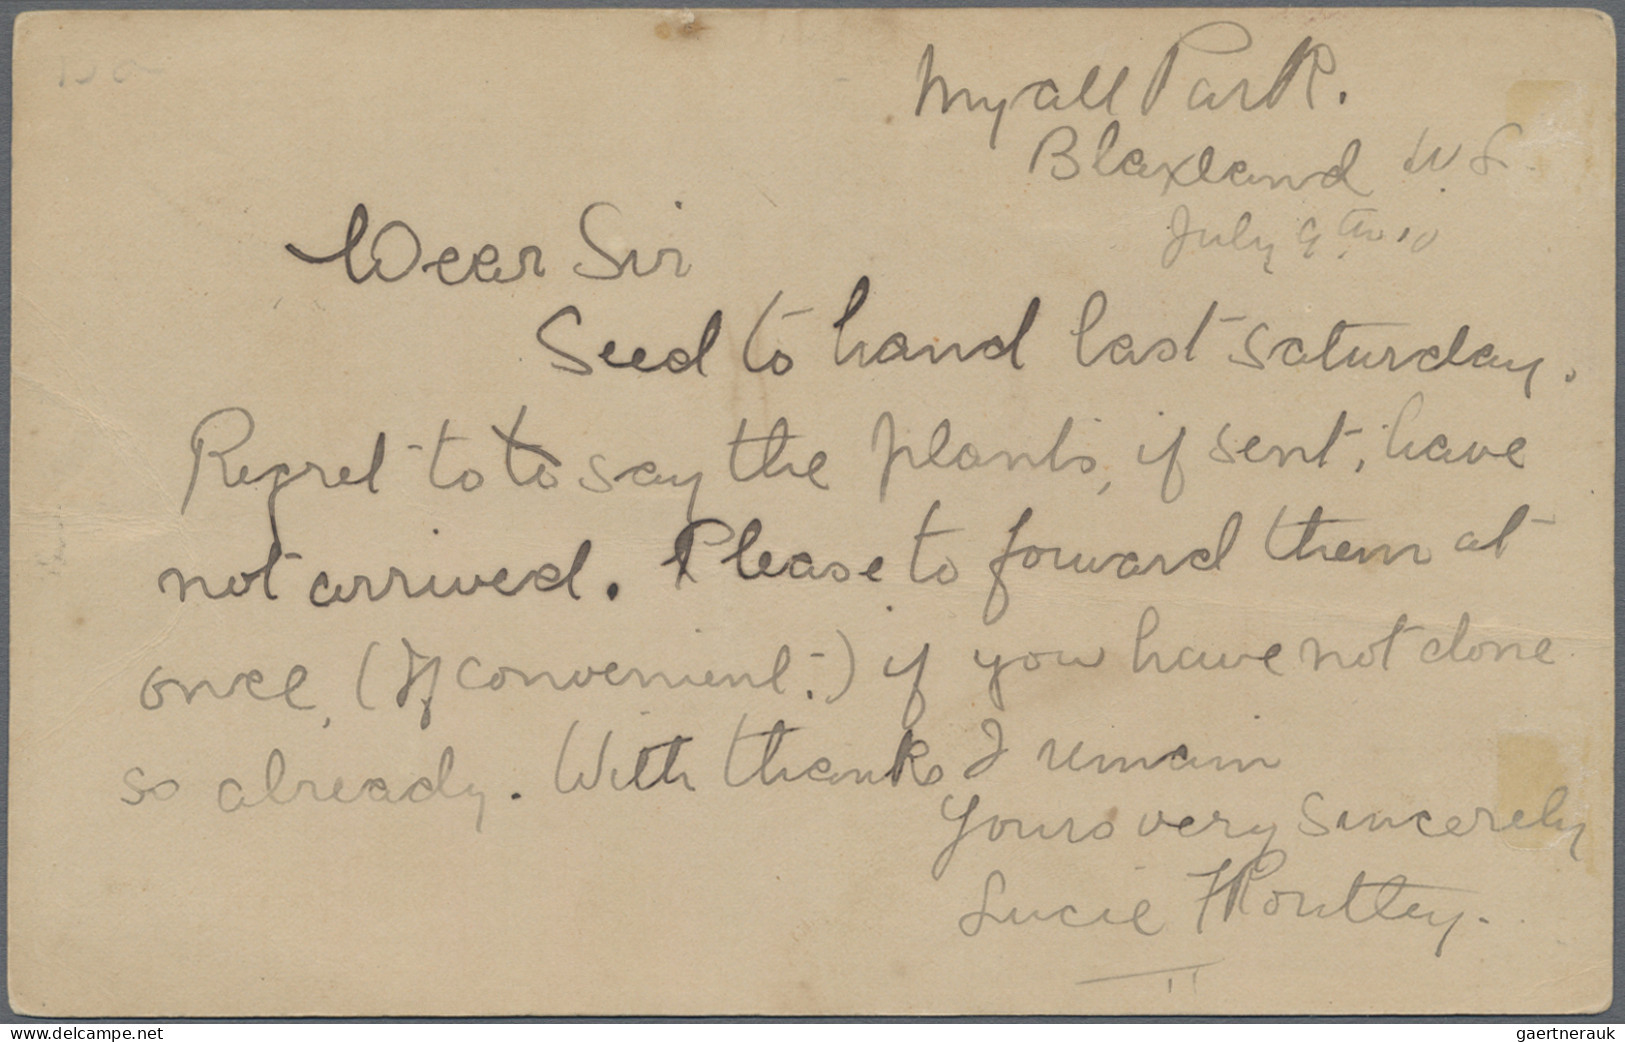 Myall Park.
Blaxland W. L.
July 9th 10
Dear Sir
Seed to hand last Saturday.
Regret to to say the plants, if sent, have
not arrived. Please to forward them at
once, (If convenient.) if you have not done
so already. With thanks I remain
Yours very sincerely
Lucie Routley.
www.delcampe.net
gaertnerauk